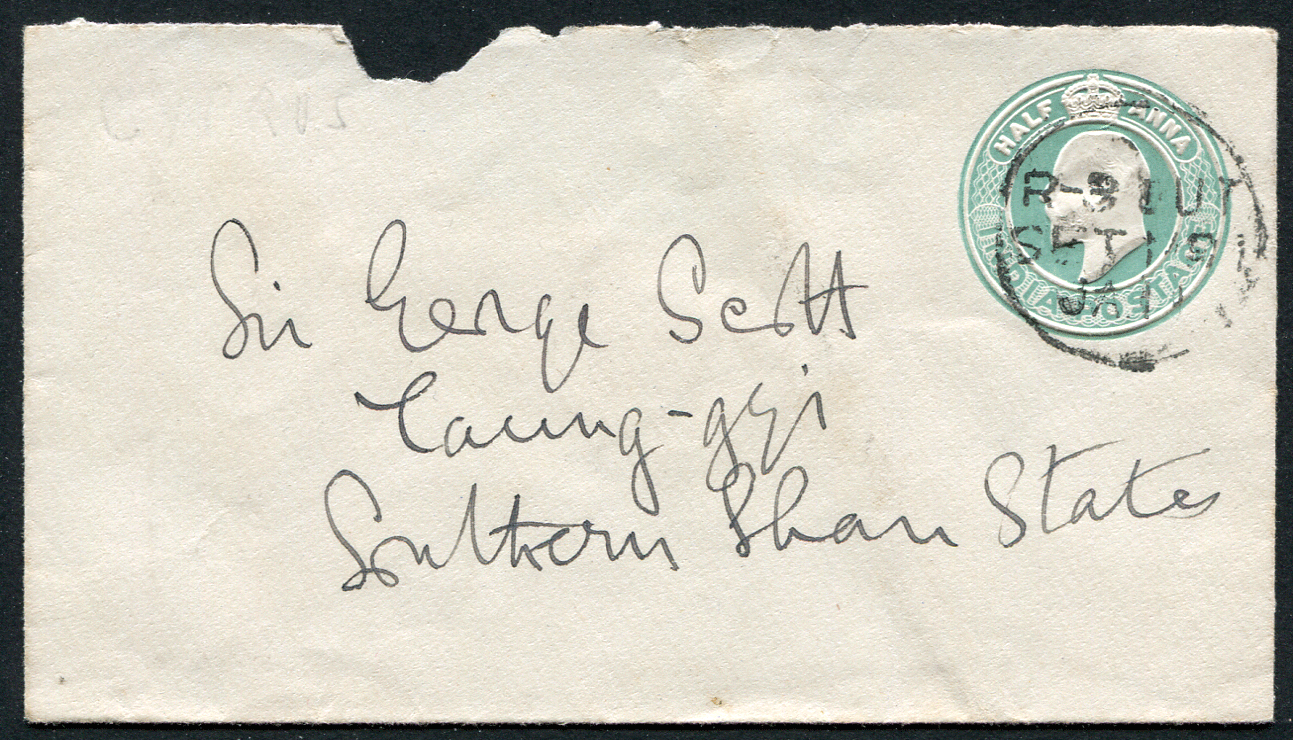 HALF ANNA
INDIA POSTAGE
R-9
SET
JA 11
Sir George Scott
Taung-gyi
Southern Shan States